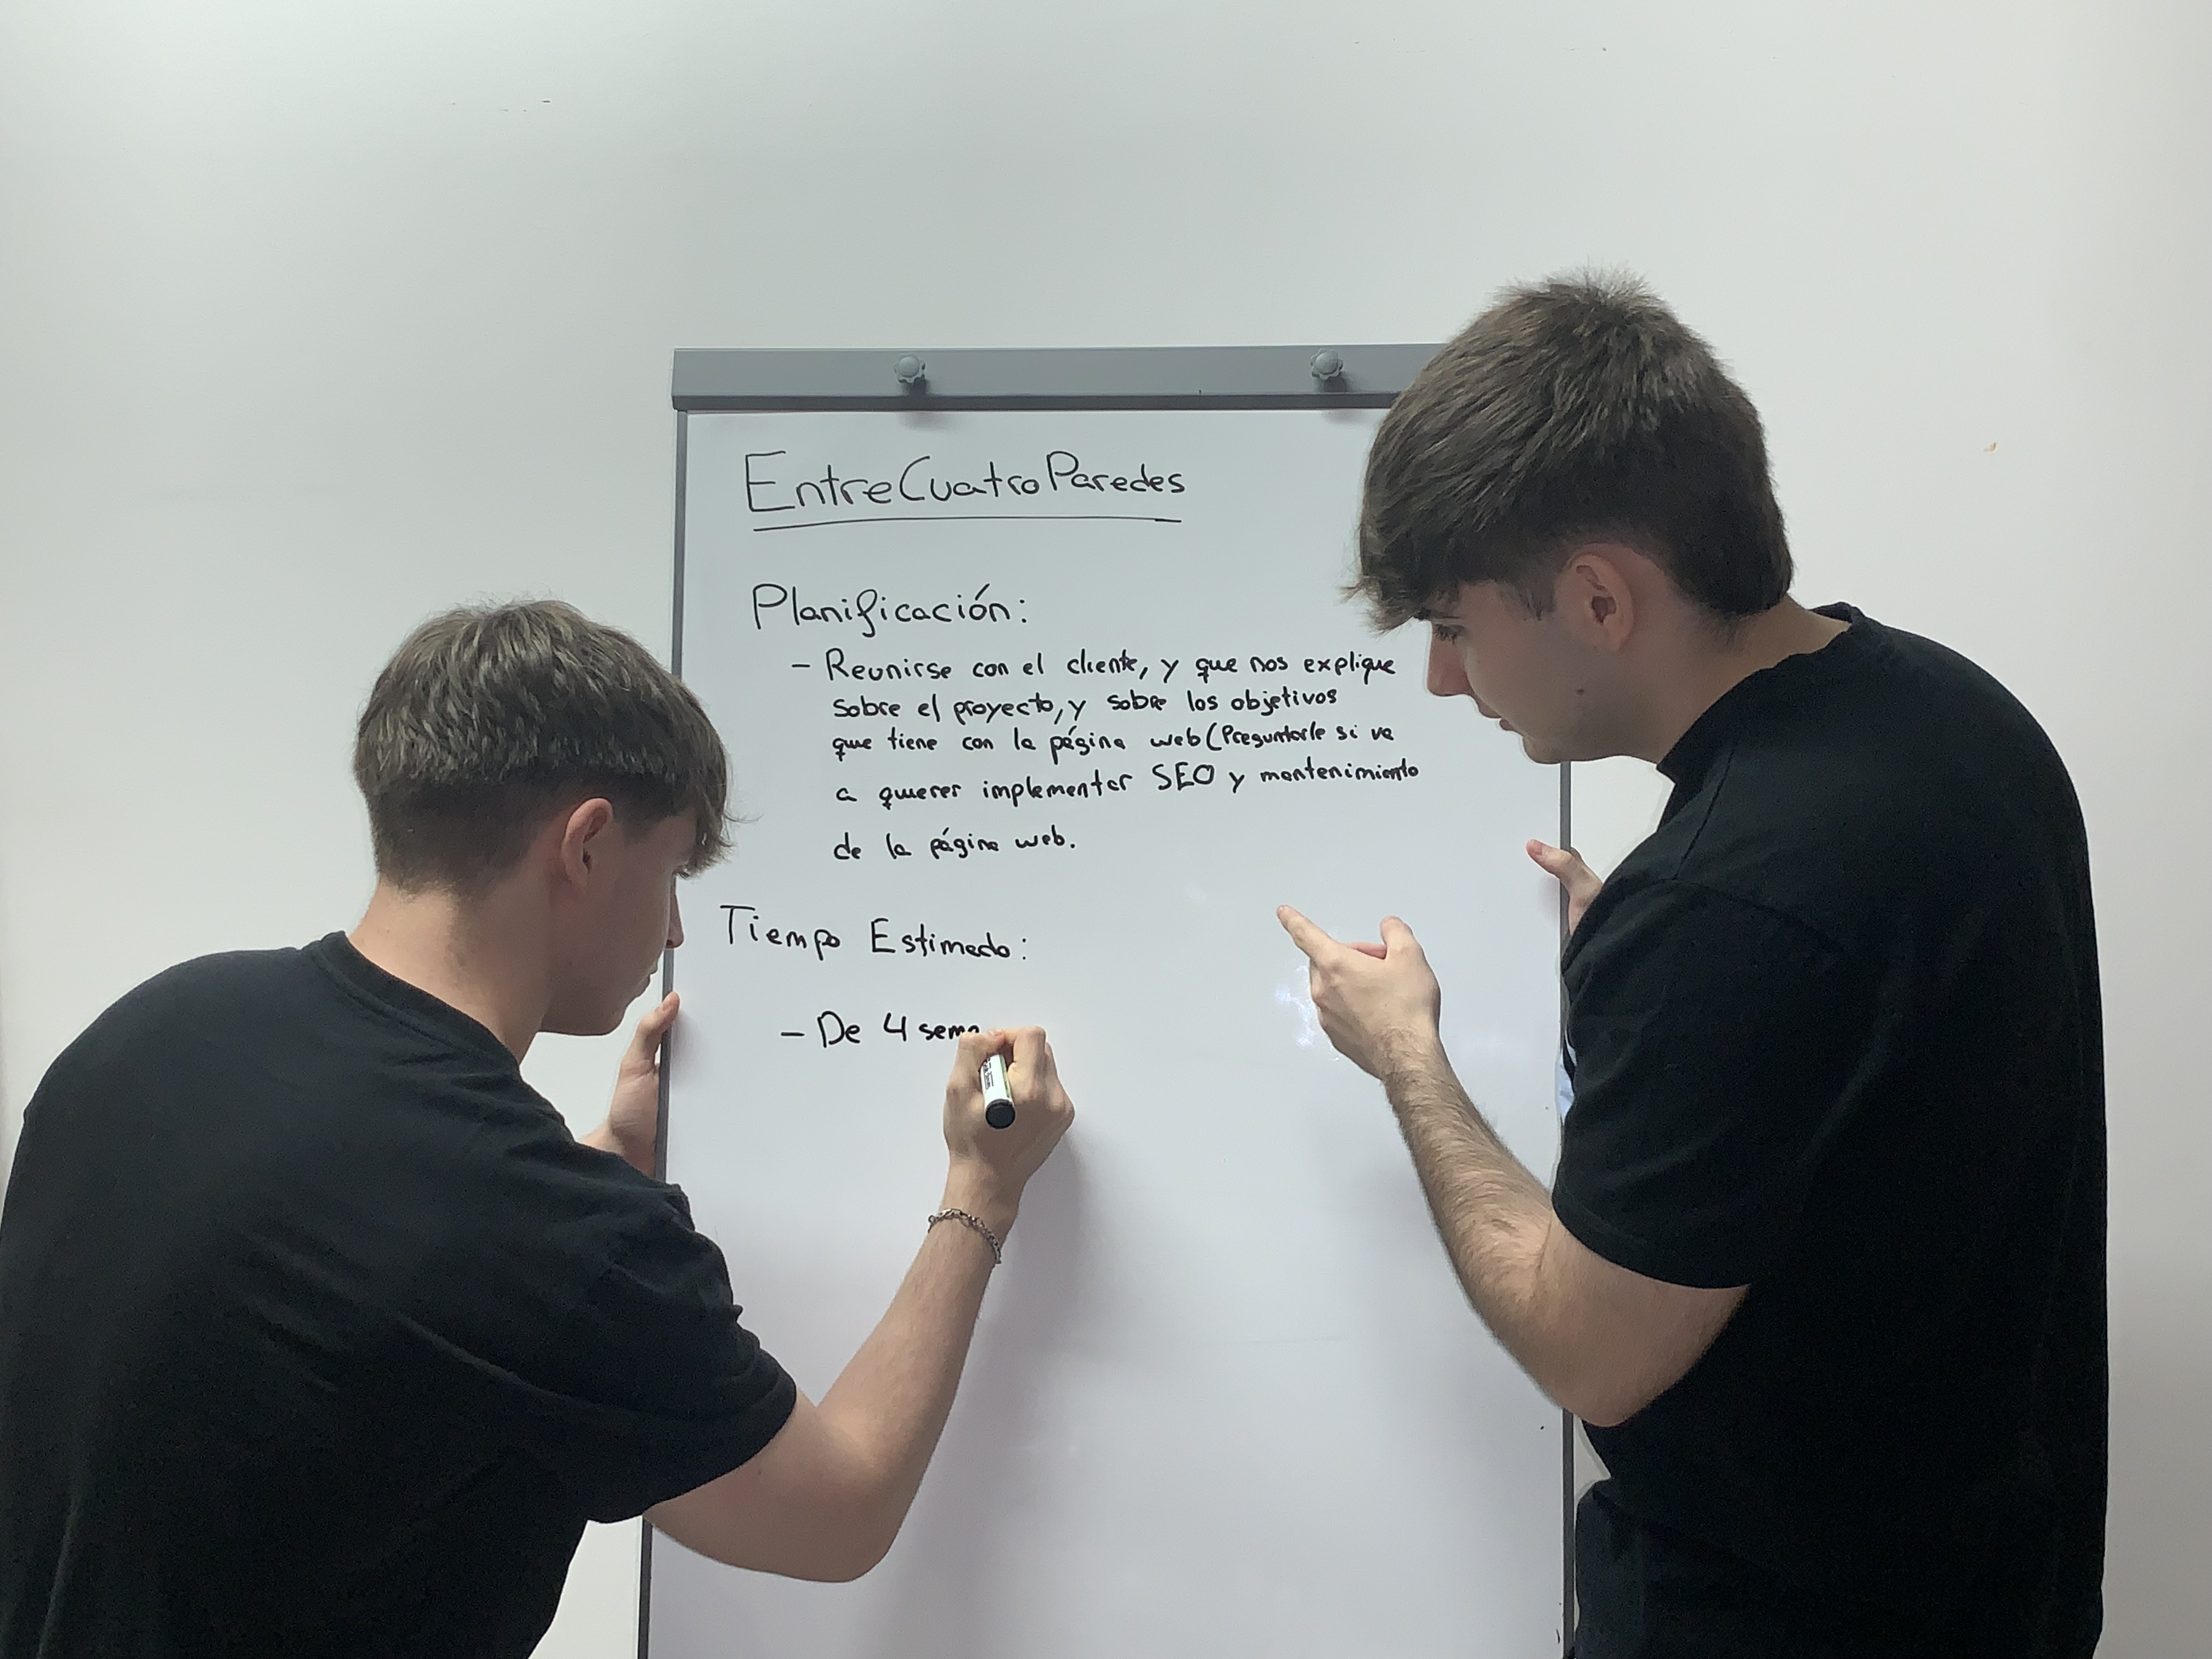 EntreCuatroParedes
Planificación:
- Reunirse con el cliente, y que nos explique
sobre el proyecto, y sobre los objetivos
que tiene con la página web (Preguntarle si va
a querer implementar SEO y mantenimiento
de la página web.
Tiempo Estimado:
- De 4 sema